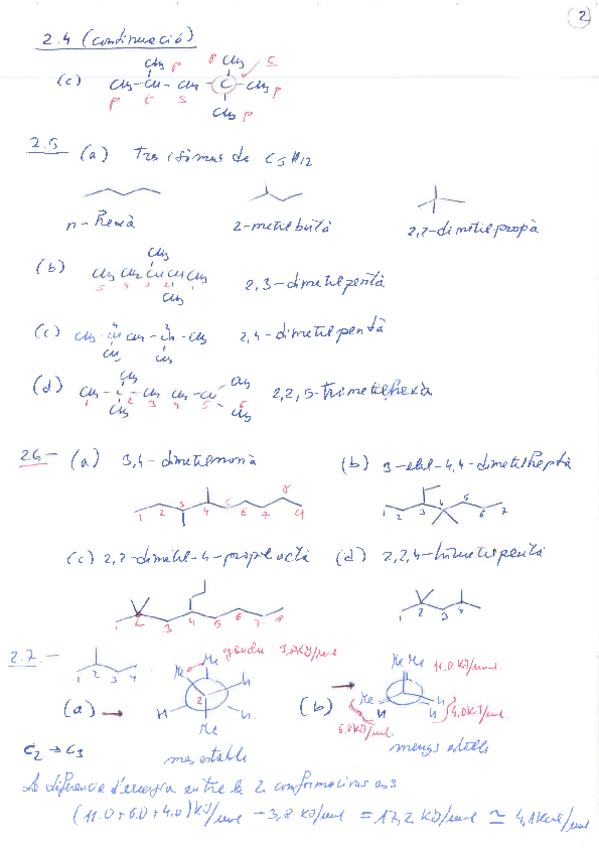 2
2.4 (continuació)
(c) CH₃-CH-CH₂-C-CH₃
CH₃ p p CH₃ s
p t s CH₃ p
2.5 (a) Tres isómers de C₅H₁₂
n-Hexà 2-metilbutà 2,2-dimetilpropà
(b) CH₃ CH₂ CH CH CH₃ 2,3-dimetilpentà
CH₃
5 4 3 2 1
CH₃
(c) CH₃ - CH CH₂ - CH - CH₃ 2,4-dimetilpentà
CH₃ CH₃
(d) CH₃ - C - CH₂ CH₂ - CH 2,2,5-trimetilhexà
CH₃ CH₃
1 2 3 4 5 6
CH₃ CH₃
2.6- (a) 3,4-dimetilnonà (b) 3-etil-4,4-dimetilheptà
1 2 3 4 5 6 7 8 9
1 2 3 4 5 6 7
(c) 2,2-dimetil-4-propiloctà (d) 2,2,4-trimetilpentà
1 2 3 4 5 6 7 8
1 2 3 4 5
2.7.- 1 2 3 4
Me Me gauche 3,8 KJ/mol
Me Me 11.0 KJ/mol
(a) → H 2 H H Me
(b) → Me H H 4,0 KJ/mol
6.0 KJ/mol
C₂ → C₃ mes estable menys estable
La diferencia d'energia entre les 2 conformacions es
(11.0 + 6.0 + 4.0) KJ/mol - 3,8 KJ/mol = 17,2 KJ/mol ≃ 4,1 Kcal/mol